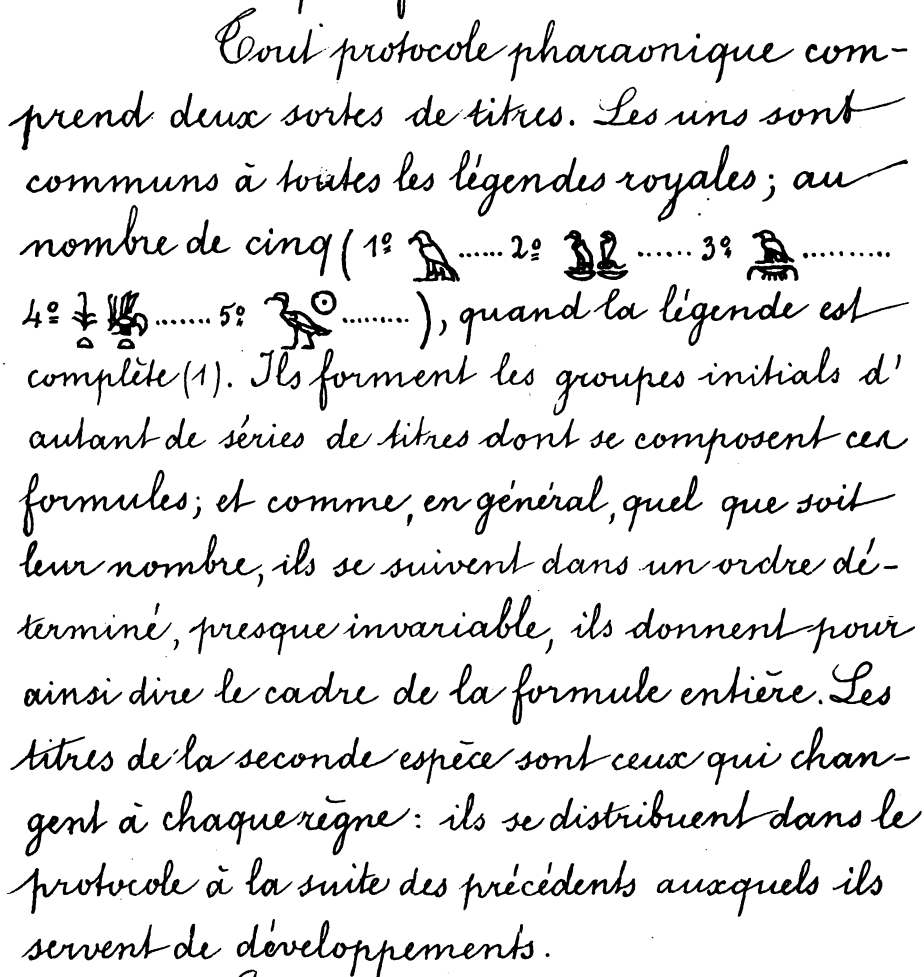 Tout protocole pharaonique com-
prend deux sortes de titres. Les uns sont
communs à toutes les légendes royales; au
nombre de cinq (1º 𓅃......2º 𓅒......3º 𓅉..........
4º 𓇓𓏏𓆤𓏏.......5º 𓅭𓇳.........), quand la légende est
complète (1). Ils forment les groupes initials d'
autant de séries de titres dont se composent ces
formules; et comme, en général, quel que soit
leur nombre, ils se suivent dans un ordre dé-
terminé, presque invariable, ils donnent pour
ainsi dire le cadre de la formule entière. Les
titres de la seconde espèce sont ceux qui chan-
gent à chaque règne: ils se distribuent dans le
protocole à la suite des précédents auxquels ils
servent de développements.